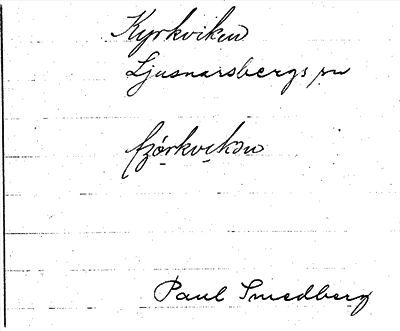 Kyrkviken
Ljusnarsbergs sn

Paul Smedberg